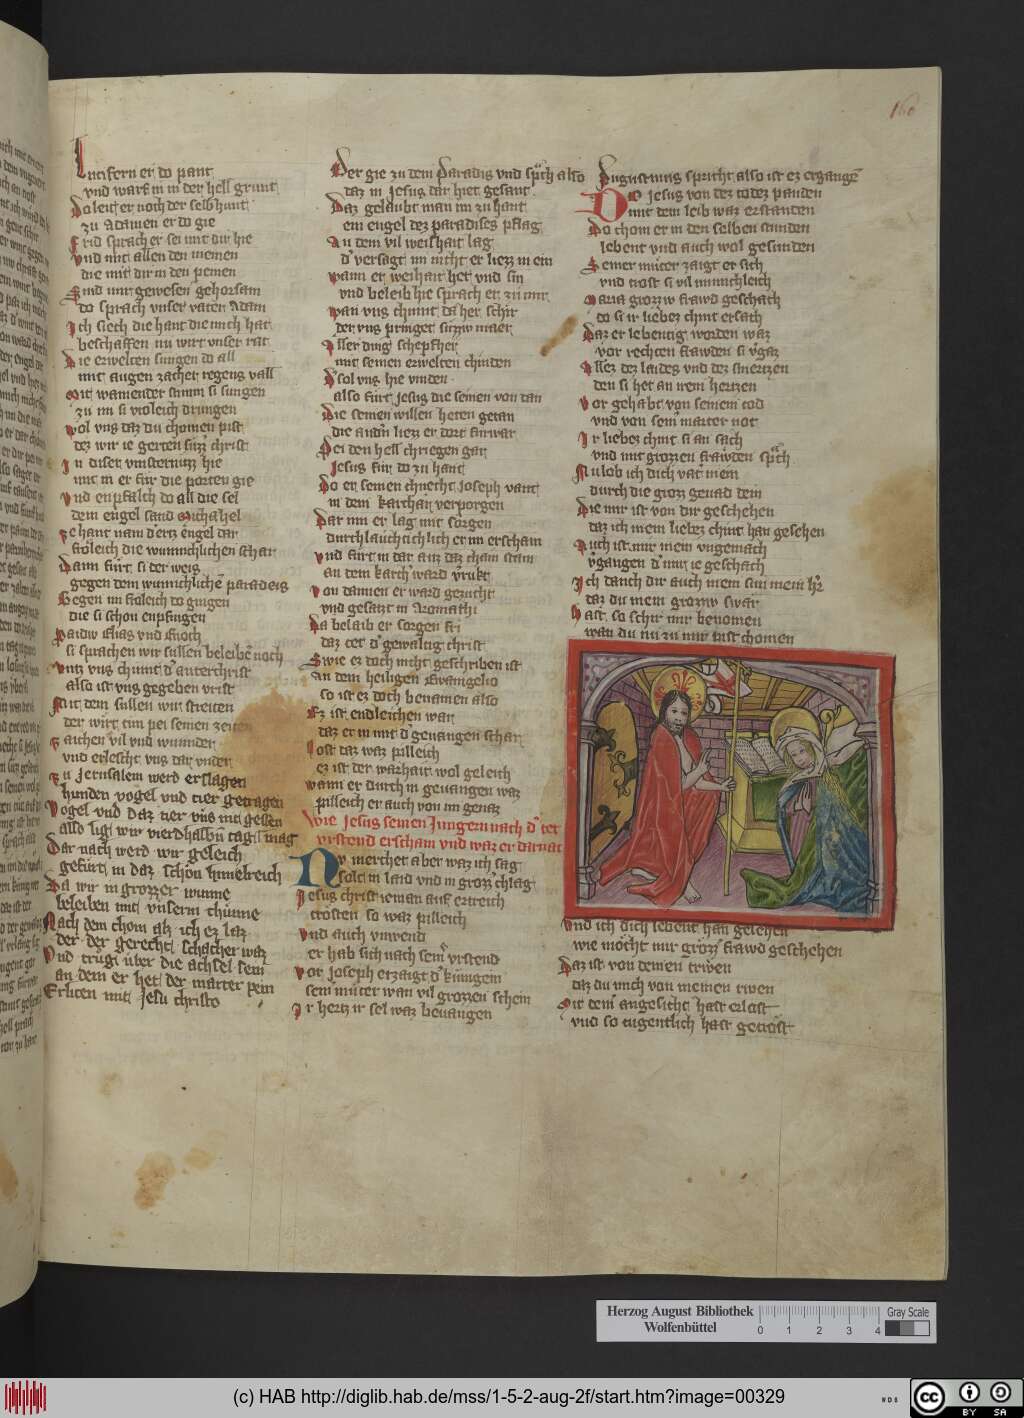 160
Lucifern er do pant
vnd warf in in der hell grunt
Do leit er noch der selb hunt
zu Adamen er do gie
Frid sprach er sei mit dir hie
Vnd mit allen den meinen
die mit dir in den peinen
Sind mir gewesen gehorsam
do sprach vnser vater Adam
Ich siech die hant die mich hat
beschaffen nu wirt vnser rat
Die erwelten sungen do all
mit augen zacher regens vall
Mit wainender stimm si sungen
zu im si vroleich drungen
Wol vns daz du chomen pist
dez wir ie gerten suzz christ
In diser vinsternuzz hie
mit in er für die porten gie
Vnd enpfalch do all die sel
dem engel sand Michahel
Ze hant nam d'ertz engel dar
froleich die wunnichlichen schar
Dann furt si der weis
gegen dem wunnichlichē paradeis
Gegen im froleich do gingen
die si schon enpfingen
Paidiv Elias vnd Enoch
si sprachen wir sullen beleibē noch
Vntz vns chumt d' anterchrist
also ist vns gegeben vrist
Mit dem sullen wir streiten
der wirt tun pei seinen zeiten
Zaichen vil vnd wunnder
vnd erlescht vns dar vnder
Zu Jerusalem werd erslagen
hunden vogel vnd tier getragen
Vogel vnd daz tier vns nit gessen
also ligt wir vierdhalbn tag
Dar nach werd wir geleich
gefürt in daz schon himelreich
Da wir in grozzer wunne
beleiben mit vnserm chunne
Nach dem chom alz ich ez laz
der der gerecht schacher waz
Vnd trug über die achsel sein
an dem er het der marter pein
Erliten mit Jesu christo
Der gie zu dem Paradis vnd sp̃ch also
daz in Jesus dar hiet gesant
Daz gelaubt man im zu hant
ein engel dez paradises pflag
An dem vil weishait lag
d' versagt im nicht er liezz in ein
Wann er weishait het vnd sin
vnd beleib hie sprach er zu mir
Wan vns chumt da her schir
der vns pringet suzziv maer
Aller ding schepfher
mit seinen erwelten chinden
D' sol vns hie vinden
also furt Jesus die seinen von dan
Die seinen willen heten getan
die andn liezz er dort fürwar
Pei den hell chriegen gar
Jesus fur do zu hant
Do er seinen chnecht Joseph vant
in dem karchar verporgen
Dar inn er lag mit sorgen
durchlauchtichlich er im erscham
Vnd fürt in dar auz daz cham stain
an dem karch' ward v'rukt
Von dannen er ward gezucht
vnd gesatzt in Aromathi
Da belaib er sorgen fri
daz tet d' gewaltig christ
Swie ez doch nicht geschriben ist
an dem heiligen Ewangelio
so ist ez doch benamen also
Ez ist endleichen war
daz er in mit d' geuangen schar
Lost daz waz pilleich
ez ist der warhait wol geleich
Wann er durch in geuangen waz
pilleich er auch von im genaz
Wie Jesus seinen Jungern nach d' zeit
vrstend erscham vnd waz er darnac
Nv merchet aber waz ich sag
solt in laid vnd in grozz' chlag
Jesus christ ieman auf ertreich
trosten so waz pilleich
Vnd auch vnwend
er hab sich nach sein' vrstend
Vor Joseph erzaigt d' kunigein
sein muter wan vil grozzen schein
Ir hertz ir sel waz beuangen
Augustinus spricht also ist ez ergangē
Do Jesus von dez todez panden
mit dem leib waz erstanden
Do chom er in den selben stunden
lebent vnd auch wol gesunden
Seiner muter zaigt er sich
vnd trost si vil minnichleich
Maria grozziv frawd geschach
do si ir liebez chint ersach
Daz er lebentig worden waz
vor rechten frawden si v'gaz
Allez dez laides vnd dez smertzen
den si het an irem hertzen
Vor gehabt von seinem tod
vnd von sein' marter not
Ir liebez chint si an sach
vnd mit grozzen frawden sp̃ch
Nu lob ich dich vat' mein
durch die grozz genad dein
Die mir ist von dir geschehen
daz ich mein liebez chint han gesehen
Auch ist mir mein vngemach
v'gangen d' mir ie geschach
Ich danch dir auch mein sun mein h'r
daz du mein grozziv swar
Hast so schir mir benomen
wan du nu zu mir pist chomen
Vnd ich dich lebent han gesehen
wie mocht mir grozz' frawd geschehen
Daz ist von deinen triwen
daz du mich von meinen riwen
Mit dein' angesicht hast erlost
vnd so tugentlich hast getrost
Herzog August Bibliothek
Wolfenbüttel
0 1 2 3 4
Gray Scale
(c) HAB http://diglib.hab.de/mss/1-5-2-aug-2f/start.htm?image=00329
WDB
cc BY SA